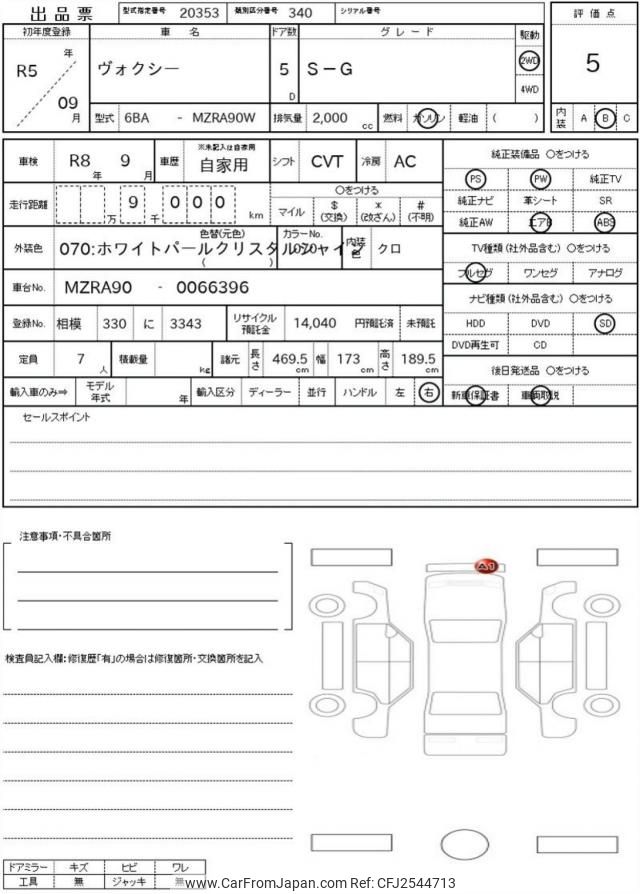 出品票 型式指定番号 20353 類別区分番号 340 シリアル番号
評価点
5
初年度登録 車名 ドア数 グレード 駆動
R5 年 09 月 ヴォクシー 5 D S-G 2WD 4WD
型式 6BA - MZRA90W 排気量 2,000 cc 燃料 ガソリン 軽油 ( ) 内装 A B C
車検 R8 年 9 月 車歴 ※未記入は自家用 自家用 シフト CVT 冷房 AC
走行距離 万 9 千 0 0 0 km
〇をつける
マイル $ (交換) * (改ざん) # (不明)
外装色 070:ホワイトパールクリスタルシャイン 色替(元色) ( ) カラーNo. 070 内装色 クロ
車台No. MZRA90 - 0066396
登録No. 相模 330 に 3343 リサイクル預託金 14,040 円預託済 未預託
定員 7 人 積載量 kg 諸元 長さ 469.5 cm 幅 173 cm 高さ 189.5 cm
輸入車のみ⇒ モデル年式 年 輸入区分 ディーラー 並行 ハンドル 左 右
純正装備品 〇をつける
PS PW 純正TV
純正ナビ 革シート SR
純正AW エアB ABS
TV種類(社外品含む) 〇をつける
フルセグ ワンセグ アナログ
ナビ種類(社外品含む) 〇をつける
HDD DVD SD
DVD再生可 CD
後日発送品 〇をつける
新車保証書 車両取説
セールスポイント
注意事項・不具合箇所
A1
検査員記入欄:修復歴「有」の場合は修復箇所・交換箇所を記入
ドアミラー キズ ヒビ ワレ
工具 無 ジャッキ 無
www.CarFromJapan.com Ref: CFJ2544713